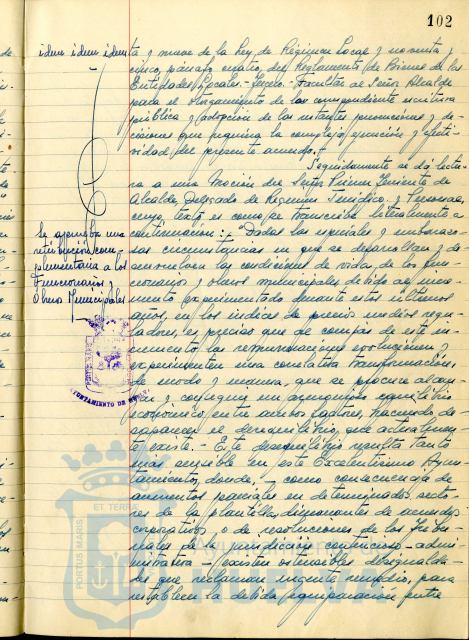 102
idem idem idem
ta y nueve de la Ley de Régimen Local y noventa y
cinco, párrafo cuarto, del Reglamento de Bienes de las
Entidades Locales.- Tercero.- Facultar al Señor Alcalde
para el otorgamiento de la correspondiente escritura
pública y adopción de las restantes prevenciones y de-
cisiones que requiera la completa ejecución y efecti-
vidad del presente acuerdo.
Seguidamente se dió lectu-
ra a una Moción del Señor Primer Teniente de
Alcalde, Delegado de Régimen Jurídico y Personal,
cuyo texto es como se transcribe literalmente a
continuación:
Se aprueba una
retribución com-
plementaria a los
Funcionarios y
Obreros Municipales
Dadas las especiales y embarazo-
sas circunstancias en que se desarrollan y de-
senvuelven las condiciones de vida, de los fun-
cionarios y obreros municipales debido al incre-
mento experimentado durante estos últimos
años, en los índices de precios medios regu-
ladores, es preciso que al compás de este in-
cremento las remuneraciones evolucionen y
experimenten una constante transformación,
de modo y manera, que se procure alcan-
zar y conseguir un armonioso equilibrio
económico, entre ambos factores, haciendo de-
saparecer el desequilibrio, que actualmen-
te existe.- Este desequilibrio resulta tanto
más sensible en este Excelentísimo Ayun-
tamiento, donde, - como consecuencia de
aumentos parciales en determinados secto-
res de la plantilla, dimanantes de acuerdos
corporativos o de resoluciones de los Tribu-
nales de la jurisdicción contencioso-admi-
nistrativa - existen ostensibles desigualda-
des que reclaman urgente remedio, para
establecer la debida equiparación entre
AYUNTAMIENTO DE
PORTUS MARIS
ET TERRAE